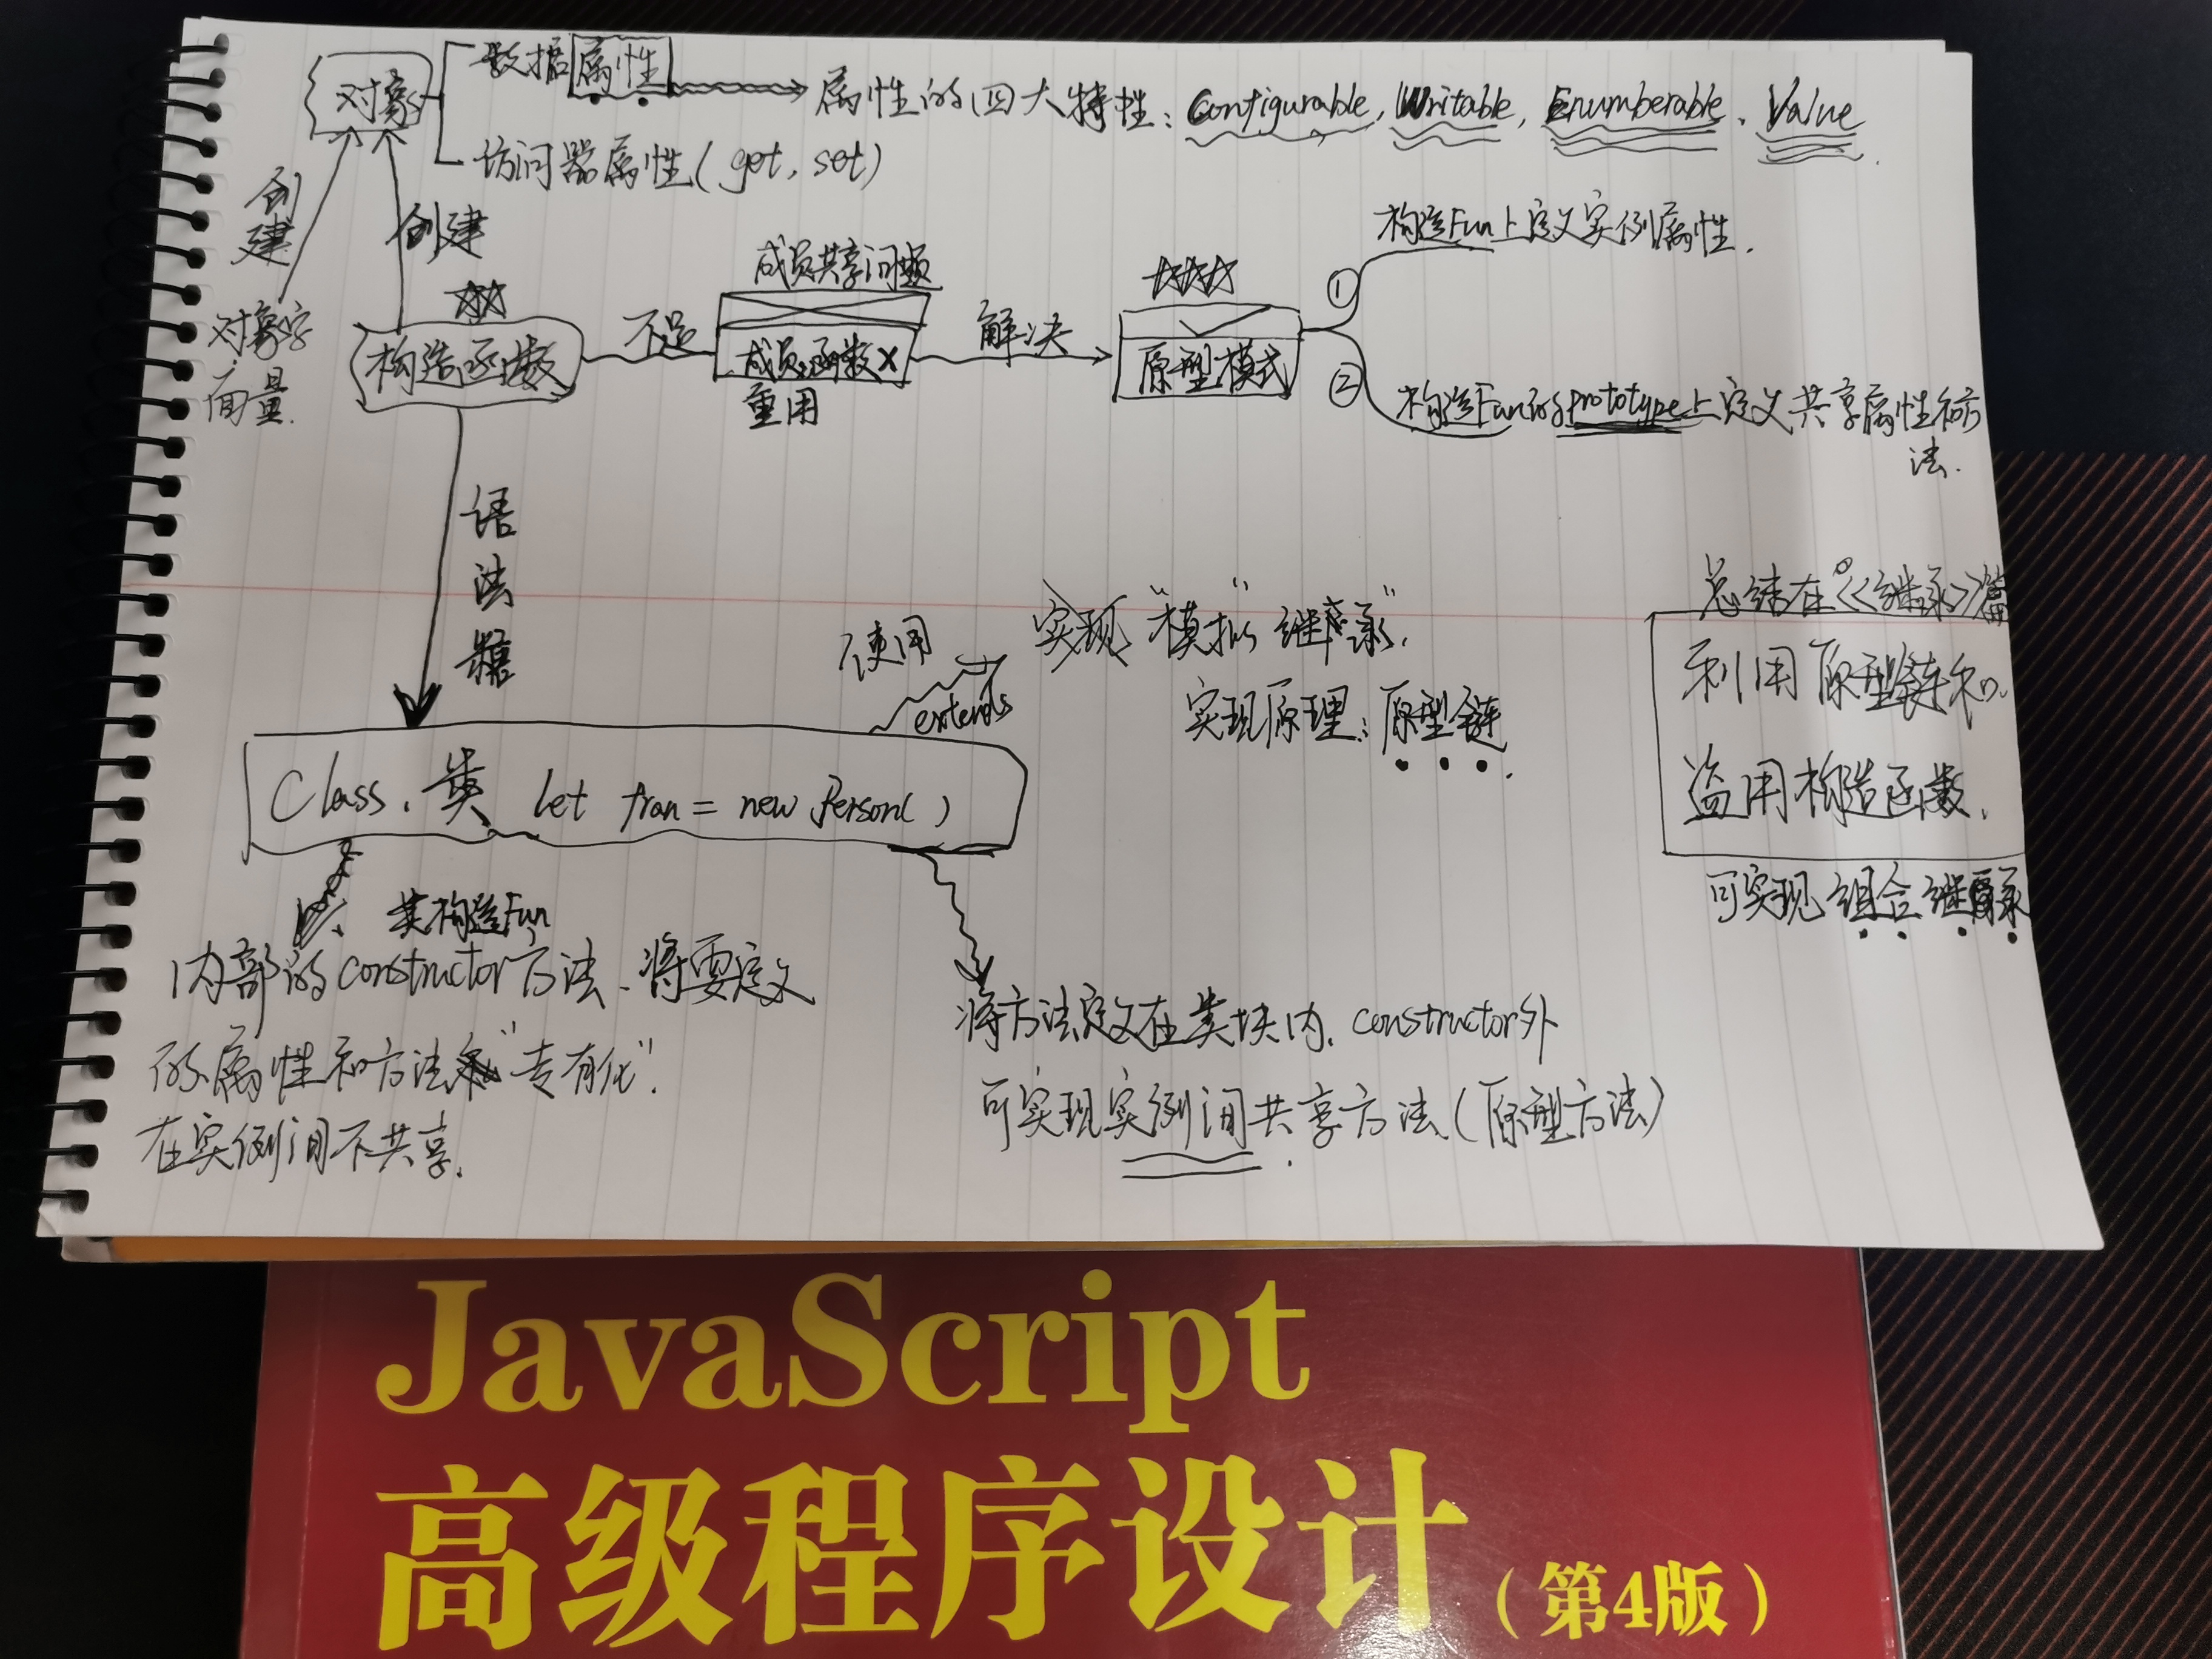 对象
数据属性
属性的四大特性：Configurable, Writable, Enumberable, Value
访问器属性(get, set)
创建
创建
对象字
面量.
构造函数
不足
成员共享问题
成员函数X
重用
解决
原型模式
①
构造Fun上定义实例属性.
②
构造Fun的prototype上定义共享属性和方
法.
语法糖
使用
extends
实现"模拟"继承".
实现原理：原型链.
总结在《继承》篇
利用原型链和
盗用构造函数.
可实现组合继承
Class. 类 let fran = new Person()
类构造Fun
内部的constructor方法.将要定义
的属性和方法"专有化".
在实例间不共享.
将方法定义在类块内, constructor外
可实现实例间共享方法(原型方法)
JavaScript
高级程序设计
（第4版）